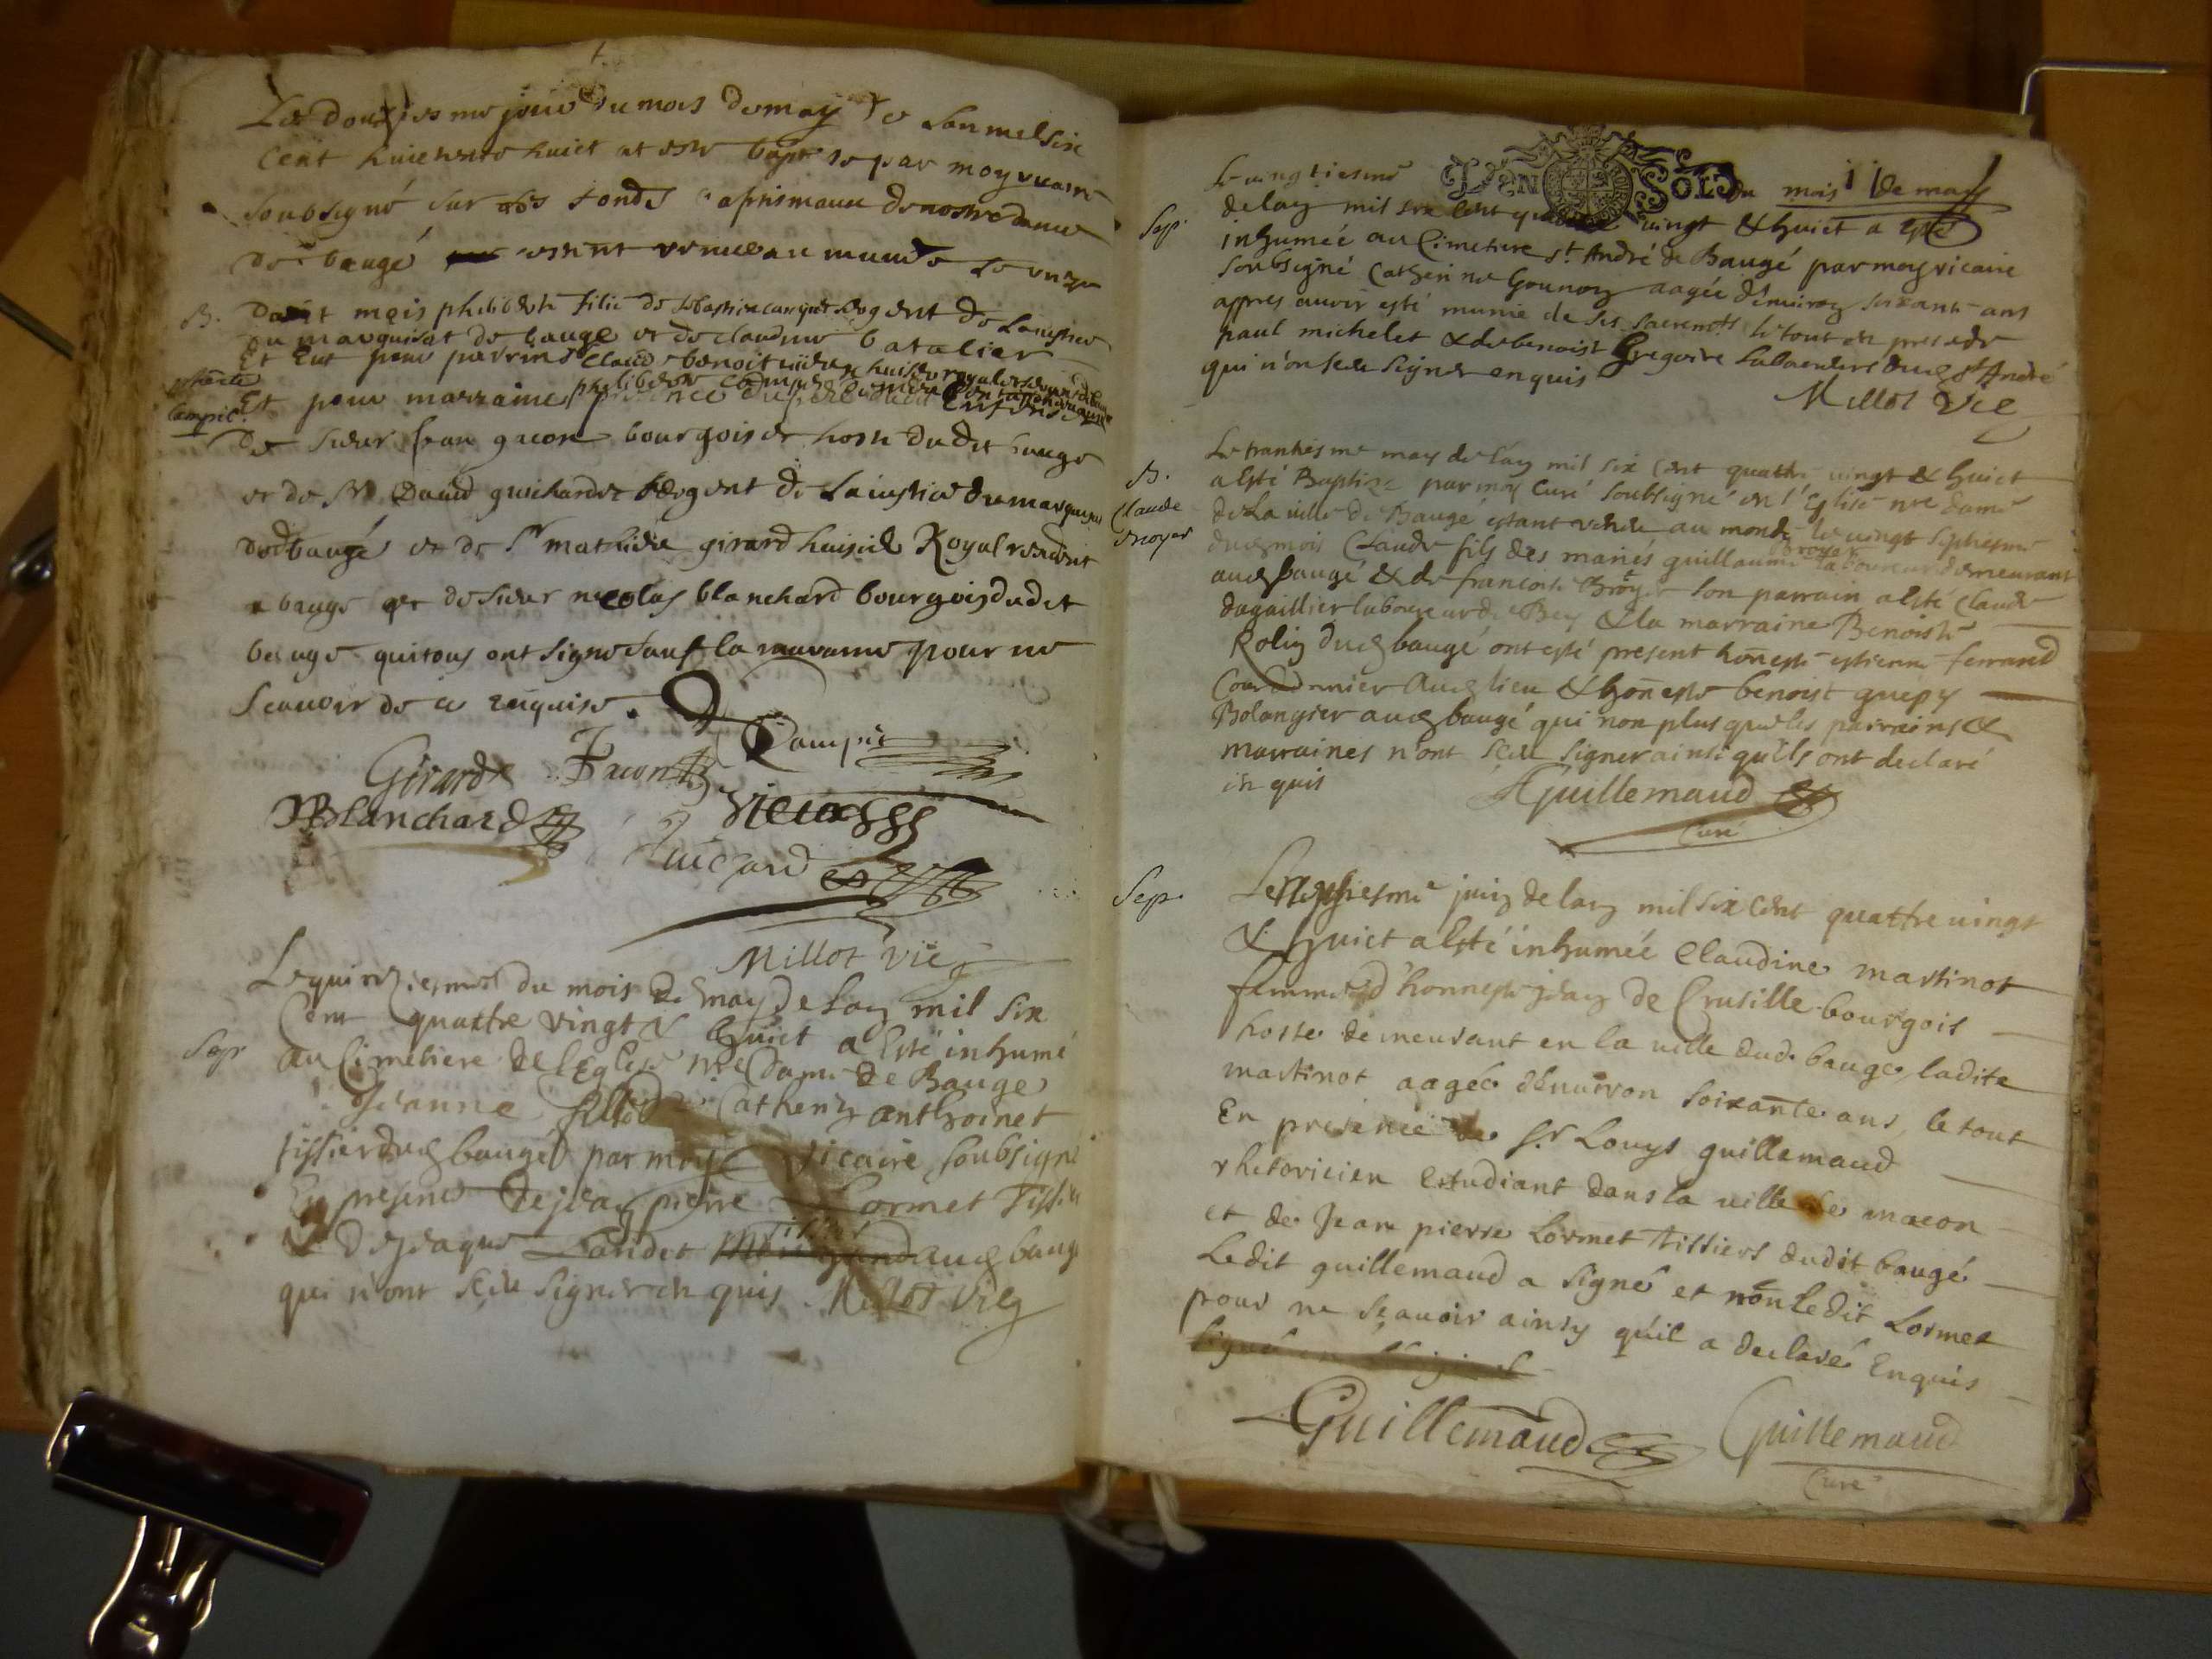 Le douziesme jour du mois de may de lan mil six
cent huictante huict at este baptise par moy vicaire
soubsigné sur les fonds baptismaux de nostre dame
de baugé estant venue au monde le unze
B. dudit mois philiberte fille de
du marquisat de baugé et de claudine batalier
Et Eut pour parrins Claude benoit huissier royal
philiberte
Campic.
Et pour marraine
de sieur gacon bourgois et hoste dudit baugé
et de Mr David guichard de la justice du marquisat
de baugé et de Sr mathieu girard huissier Royal residant
a baugé et de sieur nicolas blanchard bourgois dudit
baugé qui tous ont signé sauf la marraine pour ne
scauoir de ce enquise.
Girard
Blanchard
Vieux
Guichard
Millot vic
Le quinziesme du mois de may de lan mil six
Cent quattre vingt & huict a Esté inhumé
Sep
au Cimetiere de lEglise nre dame de Baugé
Jeanne fille de anthoinet
tissier dud baugé par moy vicaire soubsigné
En presence de jean pierre Lormet Tissier
& de jaques Landet aud baugé
qui n'ont sceu signer en quis. Millot vic
Le vingtiesme du mois de may
UN SOL
Sep.
de lan mil six cent quattre vingt & huict a esté
inhumée au Cimetiere St André de Baugé par moy vicaire
soubsigné Catherine Gounon aagée d'enuiron soixante ans
appres auoir esté munie de ses sacremts le tout en presence de
paul michelet & de benoist Gregoire dud St André
qui n'on sceu signer enquis
Millot Vic
B.
Claude
broyer
Le trantiesme may de lan mil six cent quattre vingt & huict
a esté Baptizé par moy Curé soubsigné en l'Eglise nre dame
de La ville de Baugé estant venu au monde le vingt septiesme
dud mois Claude fils des mariés guillaume broyer laboureur demeurant
aud baugé & de francoise Broyer son parrain a esté Claude
dagaillier laboureur de Bey & la marraine Benoiste
Rolin dud baugé ont esté present honeste estienne ferrand
Courdonnier aud lieu & honeste benoist guepy
Bolangier aud baugé qui non plus que les parrains &
marraines n'ont sceu signer ainsi quils ont declaré
en quis
Guillemaud
Curé
Sep.
juin de lan mil six cent quattre vingt
& huict a esté inhumée Claudine martinot
femme d'honneste jean de Crusille bourgois
hoste demeurant en la ville dud. baugé, ladite
martinot aagée d'enuiron soixante ans, le tout
En presence de Sr Louys guillemaud
rhetoricien Estudiant dans la ville de macon
et de Jean pierre Lormet tissiers dudit baugé
Ledit guillemaud a signé et non Ledit Lormet
pour ne scauoir ainsy qu'il a declaré Enquis
Guillemaud Guillemaud
Curé